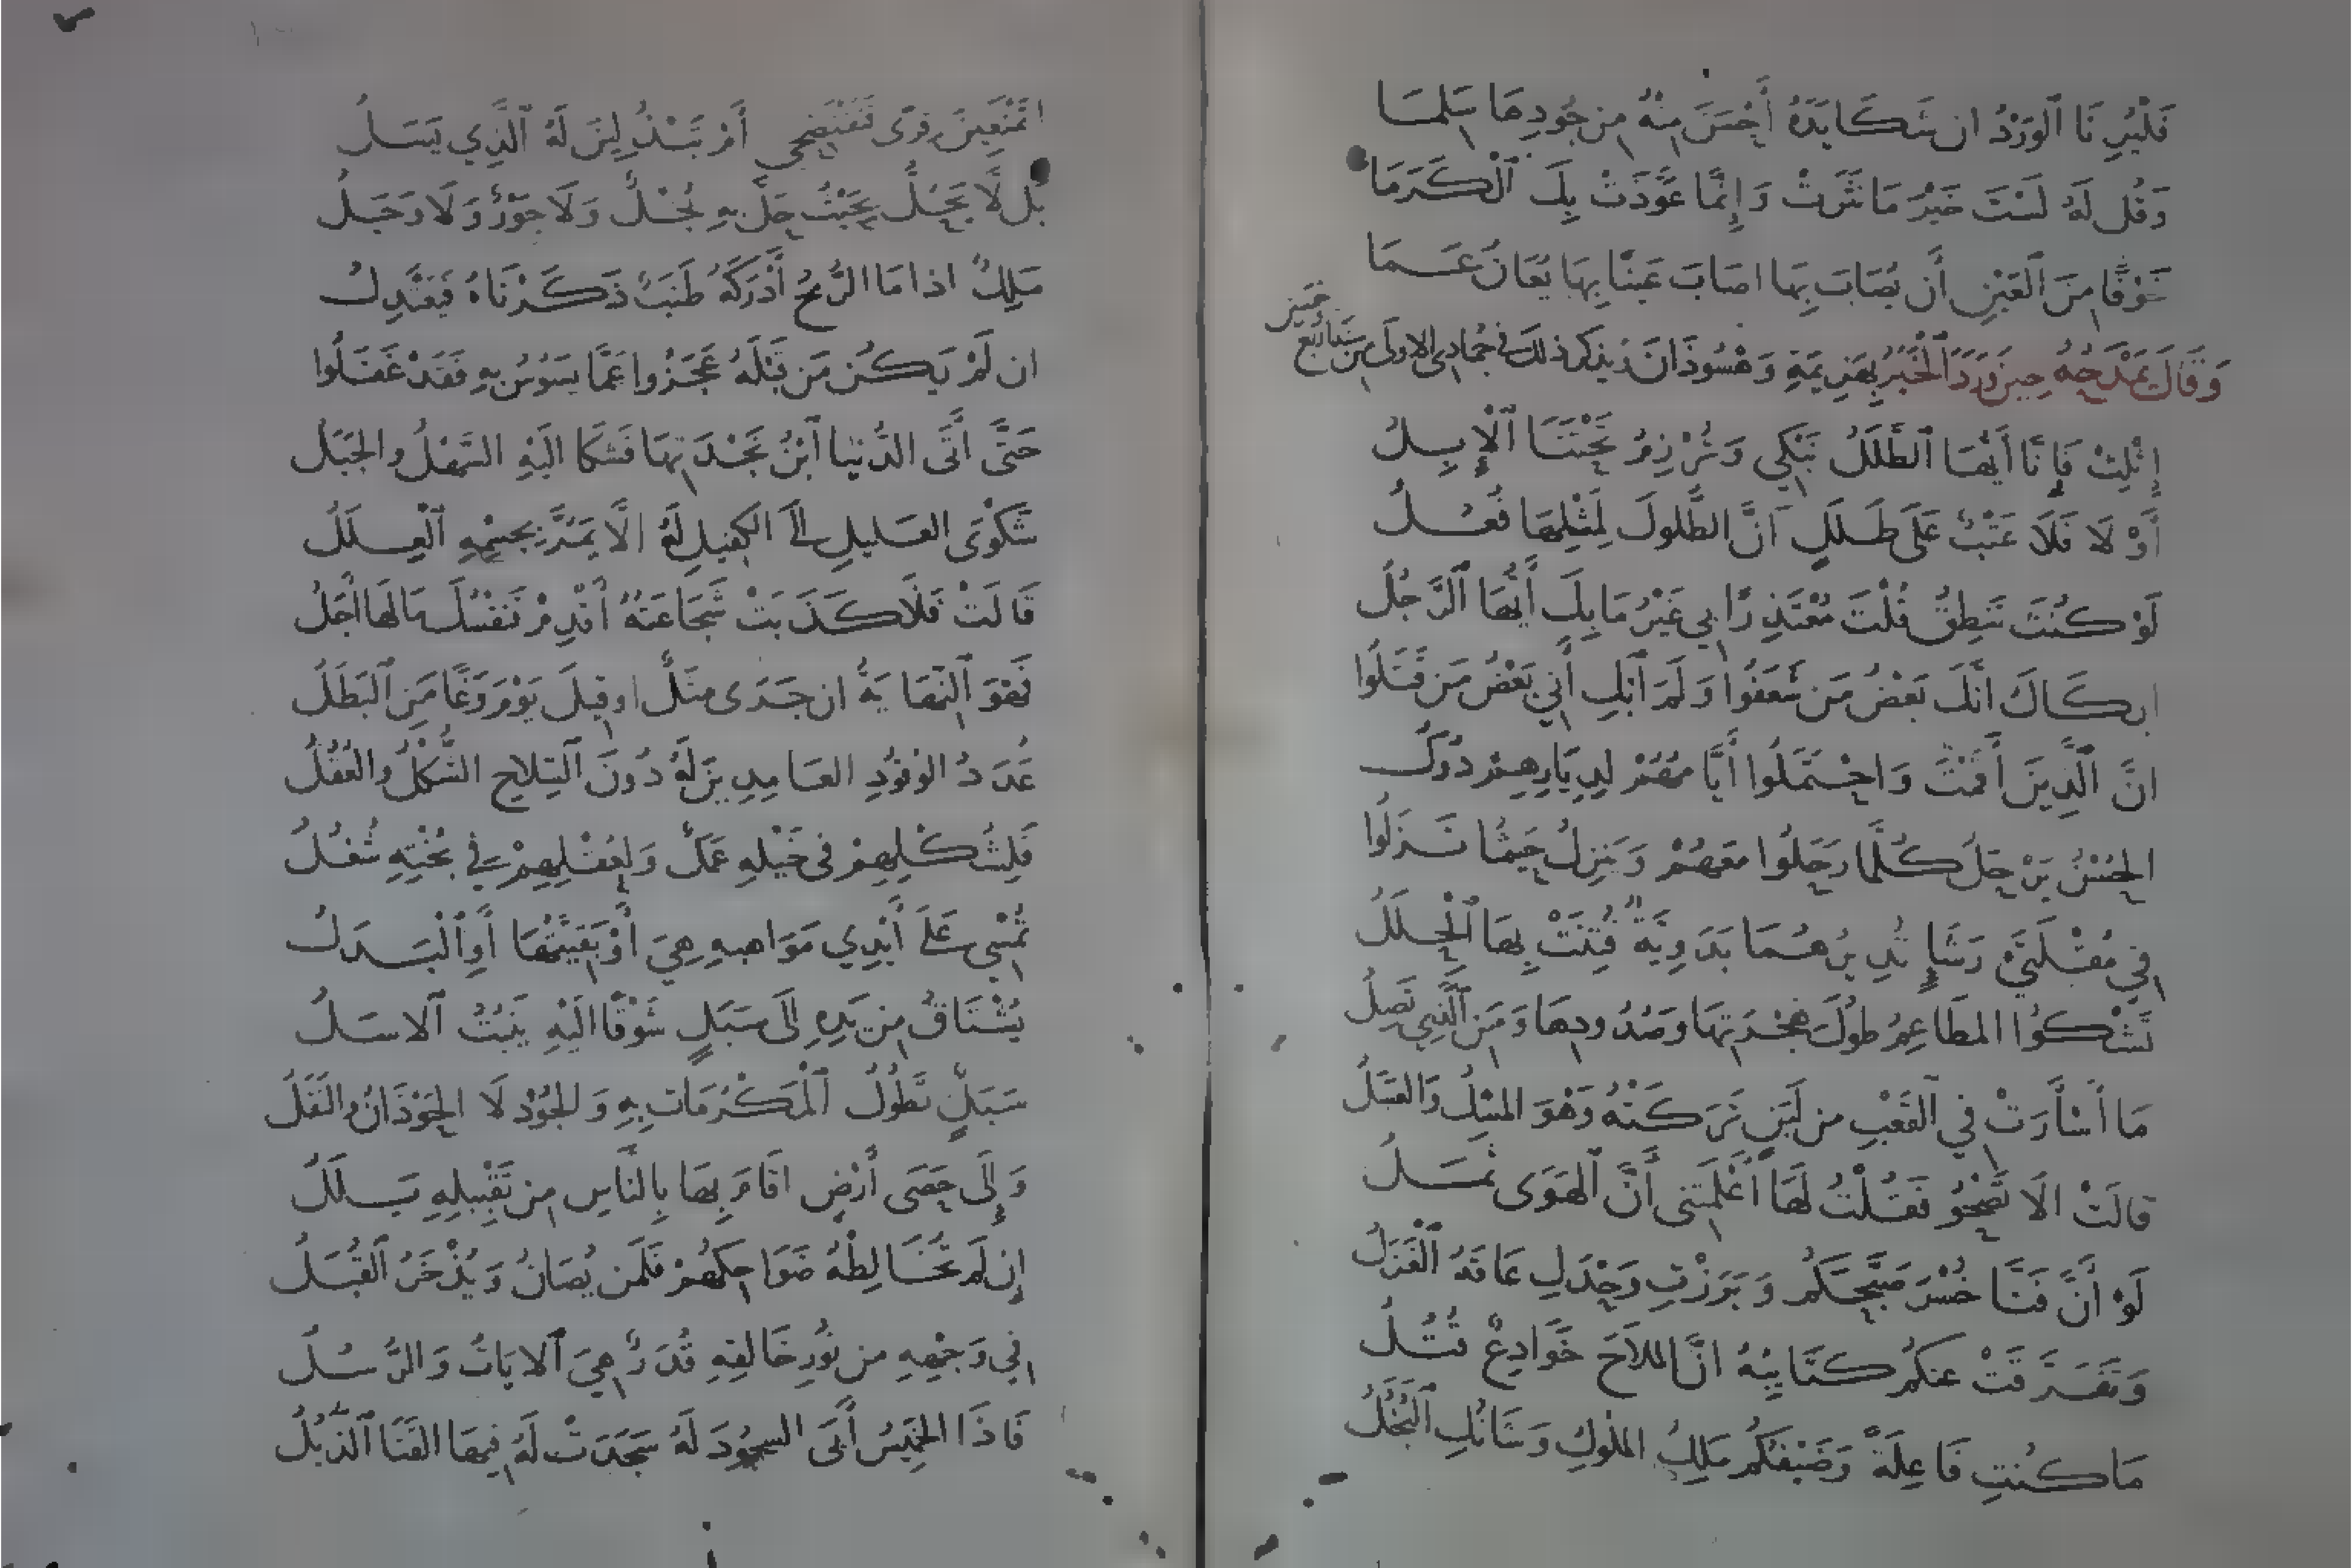 فَلْيُرِنَا ٱلوَرْدُ ان شَكَا يَدَهُ أَحْسَنَ مِنْهُ مِن جُودِهَا سَلِمَا
وَقُل لَهُ لَسْتَ خَيْرَ مَا نَثَرَتْ وَإِنَّمَا عَوَّذَتْ بِكَ ٱلْكَرَمَا
خَوْفًا مِنَ ٱلعَيْنِ أَن يُصَابَ بِهَا اصَابَ عَيْنًا بِهَا يُعَانُ عَمَا
وَقَالَ يَمْدَحُهُ حِينَ وَرَدَ ٱلْخَبَرُ بِهَزِيمَةِ وَهْسُوذَانَ وَيَذكر ذلك في جُمَادى الاولى من سَنَة اربع خمسين
إِثْلِثْ فَإِنَّا أَيُّهَا ٱلطَّلَلُ نَبْكِي وَتُرْزِمُ تَحْتَنَا ٱلْإِبِلُ
أَوْ لَا فَلَا عَتْبٌ عَلَى طَلَلٍ انَّ الطُّلولَ لِمْثْلِهَا فُعُلُ
لَوْ كُنْتَ تَنطِقُ قُلْتَ مُعْتَذِرًا بِي غَيْرُ مَا بِكَ أَيُّهَا ٱلرَّجُلُ
ابكَاكَ أنَّكَ بَعْضُ مَن شَعَفُوا وَلَمَ ٱبْكِ أَنِّي بَعْضُ مَن قَتَلُوا
انَّ ٱلَّذِينَ أَقَمْتَ وَاحْتَمَلُوا أَيَّامُهُمْ لِدِيَارِهِمْ دُوَلُ
الحُسْنُ يَرْحَلُ كُلَّمَا رَحَلُوا مَعَهُمْ وَيَنزِلُ حَيثُمَا نَزَلُوا
فِي مُقْلَتَيْ رَشَإٍ تُدِيرُهُمَا بَدَوِيَّةٌ فُتِنَتْ بِهَا ٱلْحِلَلُ
تَشْكُوا المَطَاعِمُ طُولَ هِجْرَتِهَا وصُدُودِهَا وَمَنِ ٱلَّذِي تَصِلُ
مَا أَسْأَرَتْ فِي ٱلقَعْبِ مِن لَبَنٍ تَرَكَتْهُ وَهْوَ المِسْكُ وَالعَسَلُ
قَالَتْ الَا تَصْحُو فَقُلْتُ لَهَا أَعْلَمْتِنِي أَنَّ ٱلهَوَى ثَمَلُ
لَوْ أَنَّ فَنَّا خُسْرَ صَبَّحَكُم وَبَرَزْتِ وَحْدَكِ عَاقَهُ ٱلْغَزَلُ
وَتَفَرَّقَتْ عَنكُم كَتَايِبُهُ انَّ المِلَاحَ خَوَادِعٌ قُتُلُ
مَا كُنتِ فَاعِلَةً وَضَيْفُكُم مَلِكُ المُلُوكِ وَشَانُكِ ٱلْبَخَلُ
اتُمَنِّعِينَ قِرًى فَتَفْتَضِحِي أَمْ تَبْذُلِينَ لَهُ ٱلَّذِي يَسَلُ
بَل لَّا يَحُلُّ بِحَيْثُ حَلَّ بِهِ بُخْلٌ وَلَا جَوْرٌ وَلَا وَجَلُ
مَلِكٌ اذا مَا الرُّمْحُ أَدْرَكَهُ طَنَبٌ ذَكَرْنَاهُ فَيَعْتَدِلُ
ان لَمْ يَكُن مَن قَبْلَهُ عَجَزُوا عَمَّا يَسُوسُ بِهِ فَقَدْ غَفَلُوا
حَتَّى أَتَى الدُّنيَا ٱبْنُ بَجْدَتِهَا فَشَكَا الَيْهِ السَّهْلُ والجَبَلُ
شَكْوَى العَلِيلِ الَى الكَفِيلِ لَهُ الَّا يَمُرَّ بِجِسْمِهِ ٱلْعِلَلُ
قَالَتْ فَلَا كَذَبَتْ شَجَاعَتُهُ أَقْدِمْ فَنَفْسُكَ مَا لَهَا أَجَلُ
فَهْوَ ٱلنِّهَايَةُ ان جَرَى مَثَلٌ او قِيلَ يَوْمَ وَغًا مَنِ ٱلبَطَلُ
عُدَدُ الوُفُودِ العَامِدِينَ لَهُ دُونَ ٱلسِّلَاحِ الشُّكْلُ والعُقُلُ
فَلِشُكْلِهِمْ فِي خَيْلِهِ عَمَلٌ وَلِعُقْلِهِمْ فِي بُخْتِهِ شُغُلُ
تُمْسِي عَلَى أَيْدِي مَوَاهِبِهِ هِيَ أَوْ بَقِيَّتُهَا أَوِ ٱلْبَدَلُ
يُشْتَاقُ مِن يَدِهِ إِلَى سَبَلٍ شَوْقًا الَيْهِ يَنبُتُ ٱلاسَلُ
سَبَلٍ تَطُولُ ٱلْمَكْرُمَاتُ بِهِ وَالجُودُ لَا الحَوْذَانُ والنَّفَلُ
وَإِلَى حَصَى أَرْضٍ اقَامَ بِهَا بِالنَّاسِ مِن تَقْبِيلِهِ يَلَلُ
إِن لَم تُخَالِطْهُ ضَوَاحِكُهُمْ فَلِمَن يُصَانُ وَيُذْخَرُ ٱلقُبَلُ
فِي وَجْهِهِ مِن نُورِ خَالِقِهِ قُدَرٌ هِيَ ٱلايَاتُ وَالرُّسُلُ
فَاذَا الخَمِيسُ أَبَى السجُودَ لَهُ سَجَدَتْ لَهُ فِيهَا القَنَا ٱلذُّبُلُ